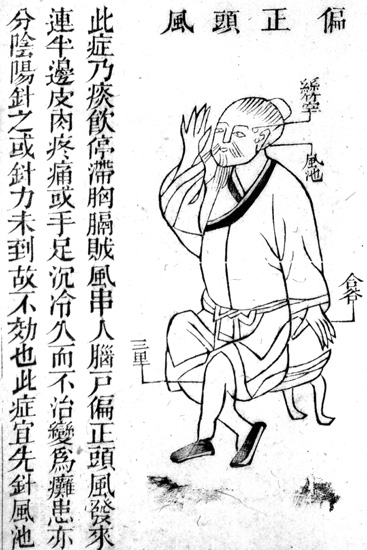 偏正頭風
絲竹空
風池
合谷
三里
此症乃痰飲停滯胸膈賊風串入腦戶偏正頭風發來
連半邊皮肉疼痛或手足沉冷久而不治變為癱患亦
分陰陽針之或針力未到故不効也此症宜先針風池